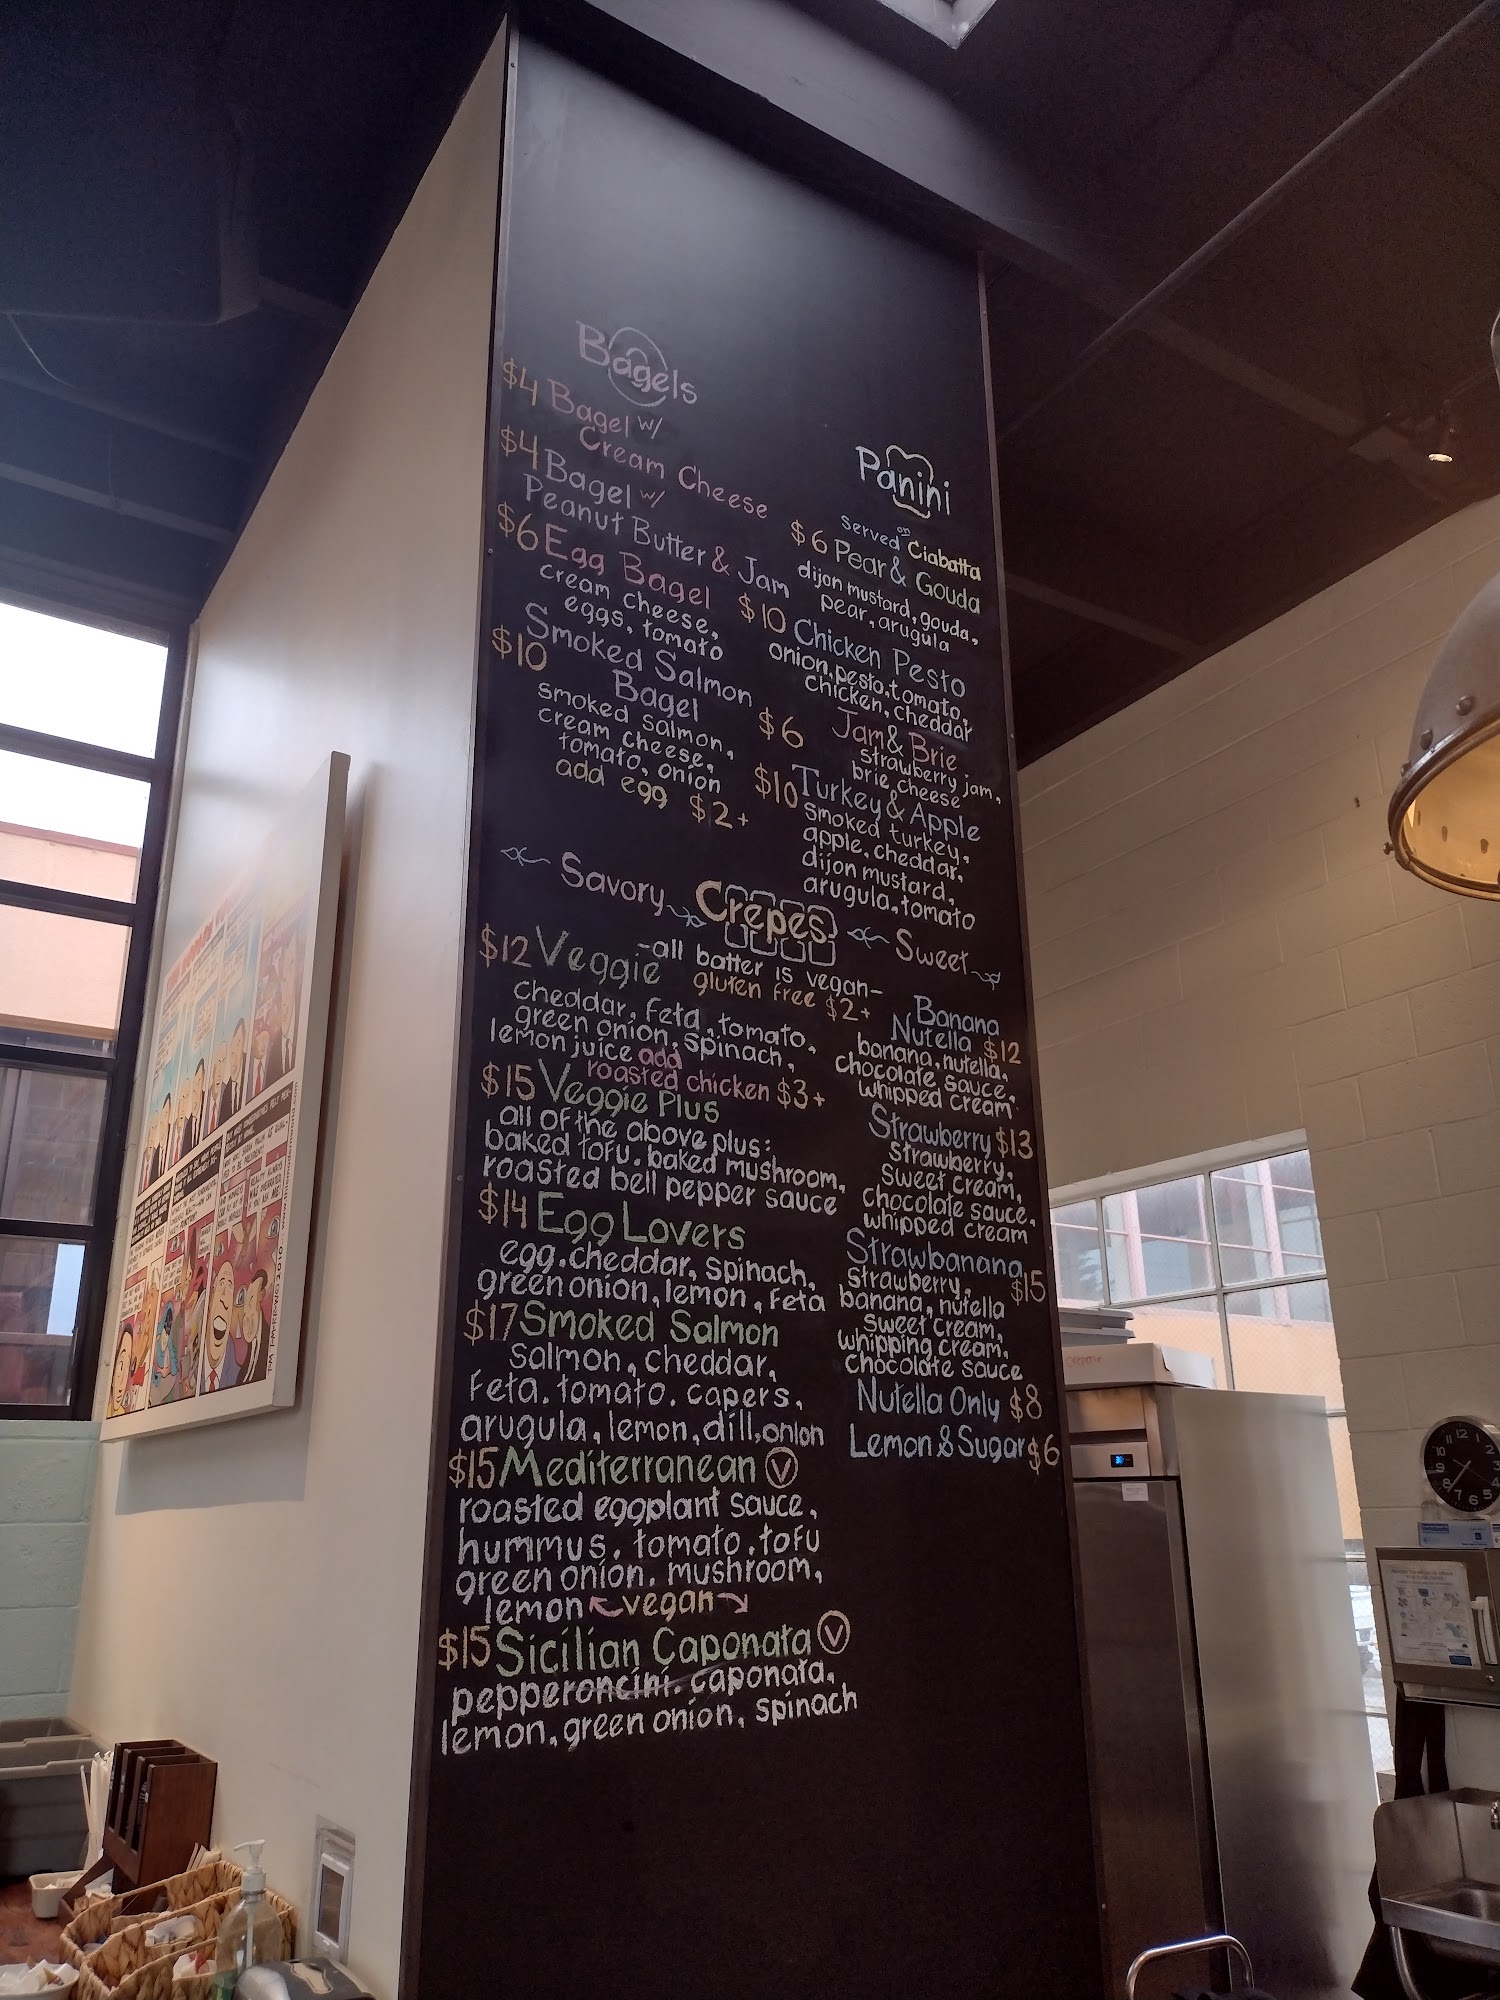 Bagels
$4 Bagel w/
Cream Cheese
$4 Bagel w/
Peanut Butter & Jam
$6 Egg Bagel
cream cheese,
eggs, tomato
$10 Smoked Salmon
Bagel
smoked salmon,
cream cheese,
tomato, onion
add egg $2+
Panini
Served on Ciabatta
$6 Pear & Gouda
dijon mustard, gouda,
pear, arugula
$10 Chicken Pesto
onion, pesto, tomato,
chicken, cheddar
$6 Jam & Brie
strawberry jam,
brie cheese
$10 Turkey & Apple
smoked turkey,
apple, cheddar,
dijon mustard,
arugula, tomato
Savory Crepes Sweet
-all batter is vegan-
gluten free $2+
$12 Veggie
cheddar, feta, tomato,
green onion, spinach,
lemon juice add
roasted chicken $3+
$15 Veggie Plus
all of the above plus:
baked tofu, baked mushroom,
roasted bell pepper sauce
$14 Egg Lovers
egg, cheddar, spinach,
green onion, lemon, feta
$17 Smoked Salmon
salmon, cheddar,
feta, tomato, capers,
arugula, lemon, dill, onion
$15 Mediterranean V
roasted eggplant sauce,
hummus, tomato, tofu
green onion, mushroom,
lemon vegan
$15 Sicilian Caponata V
pepperoncini, caponata,
lemon, green onion, spinach
Banana
Nutella $12
banana, nutella,
chocolate sauce,
whipped cream
Strawberry $13
strawberry,
sweet cream,
chocolate sauce,
whipped cream
Strawbanana $15
strawberry,
banana, nutella
sweet cream,
whipping cream,
chocolate sauce
Nutella Only $8
Lemon & Sugar $6